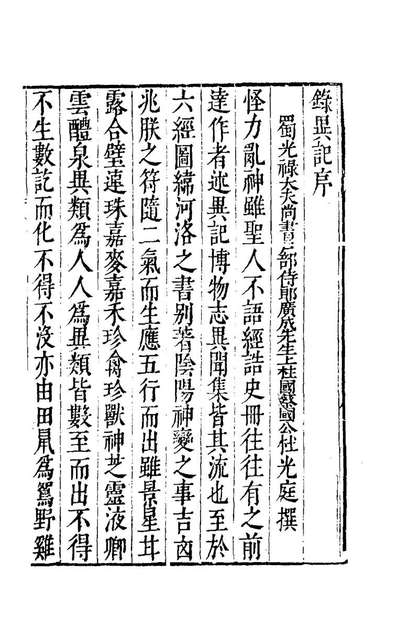 錄異記序
蜀光祿大夫尚書戸部侍郎廣成先生上柱國蔡國公杜光庭撰
怪力亂神雖聖人不語經誥史冊往往有之前
達作者述異記博物志異聞集皆其流也至於
六經圖緯河洛之書别著陰陽神變之事吉凶
兆朕之符隨二氣而生應五行而出雖景星甘
露合璧連珠嘉麥嘉禾珍禽珍獸神芝靈液卿
雲醴泉異類為人人為異類皆數至而出不得
不生數訖而化不得不没亦由田鼠為鴽野雞